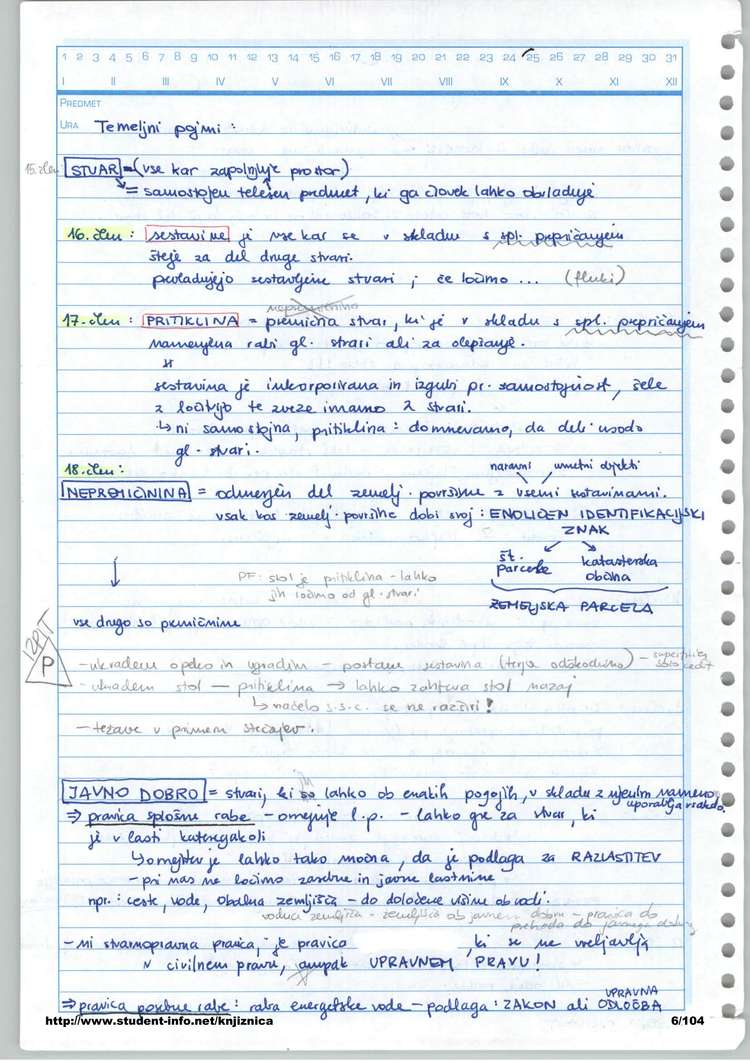 1 2 3 4 5 6 7 8 9 10 11 12 13 14 15 16 17 18 19 20 21 22 23 24 25 26 27 28 29 30 31
I II III IV V VI VII VIII IX X XI XII
PREDMET
URA Temeljni pojmi :
15. člen STVAR = (vse kar zapolnjuje prostor)
= samostojen telesen predmet, ki ga človek lahko obvladuje
16. člen : sestavine je vse kar se v skladu s spl. prepričanjem
šteje za del druge stvari.
prevladujejo sestavljene stvari ; če ločimo ... (fluki)
nepremičnina
17. člen : PRITIKLINA = premična stvar, ki je v skladu s spl. prepričanjem
namenjena rabi gl. stvari ali za olepšanje.
sestavina je inkorporirana in izgubi pr. samostojnost, šele
z ločitvijo te zveze imamo 2 stvari.
↳ ni samostojna, pritiklina : domnevamo, da deli usodo
gl. stvari.
18. člen : naravni umetni objekti
NEPREMIČNINA = odmerjen del zemelj. površine z vsemi sestavinami.
vsak kos zemelj. površine dobi svoj : ENOLIČEN IDENTIFIKACIJSKI
ZNAK
št. parcele katasterska občina
PF : stol je pritiklina - lahko
jih ločimo od gl. stvari
ZEMLJSKA PARCELA
vse drugo so premičnine
IZPIT
P
- ukradem opeko in vgradim - postane sestavina (terja odškodnino) - superficies solo cedit
- ukradem stol — pritiklina → lahko zahteva stol nazaj
↳ načelo s.s.c. se ne razširi !
- težave v primeru stečajev .
JAVNO DOBRO = stvari, ki jih lahko ob enakih pogojih, v skladu z njenim namenom,
uporablja vsakdo.
⇒ pravica splošne rabe - omejuje l.p. - lahko gre za stvar, ki
je v lasti kateregakoli
↳ omejitev je lahko tako močna, da je podlaga za RAZLASTITEV
- pri nas ne ločimo zasebne in javne lastnine
npr. : ceste, vode, obalna zemljišča - do določene višine ob vodi.
vodna zemljišča - zemljišča ob javnem dobru - pravica do
prehoda do javnega dobra
- ni stvarnopravna pravica, je pravica , ki se ne uveljavlja
v civilnem pravu, ampak UPRAVNEM PRAVU !
⇒ pravica posebne rabe : raba energetske vode - podlaga : ZAKON ali UPRAVNA ODLOČBA
http://www.student-info.net/knjiznica 6/104